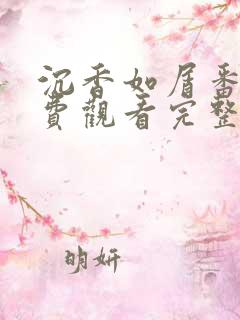 沉香如屑番
費觀看完整
明妍